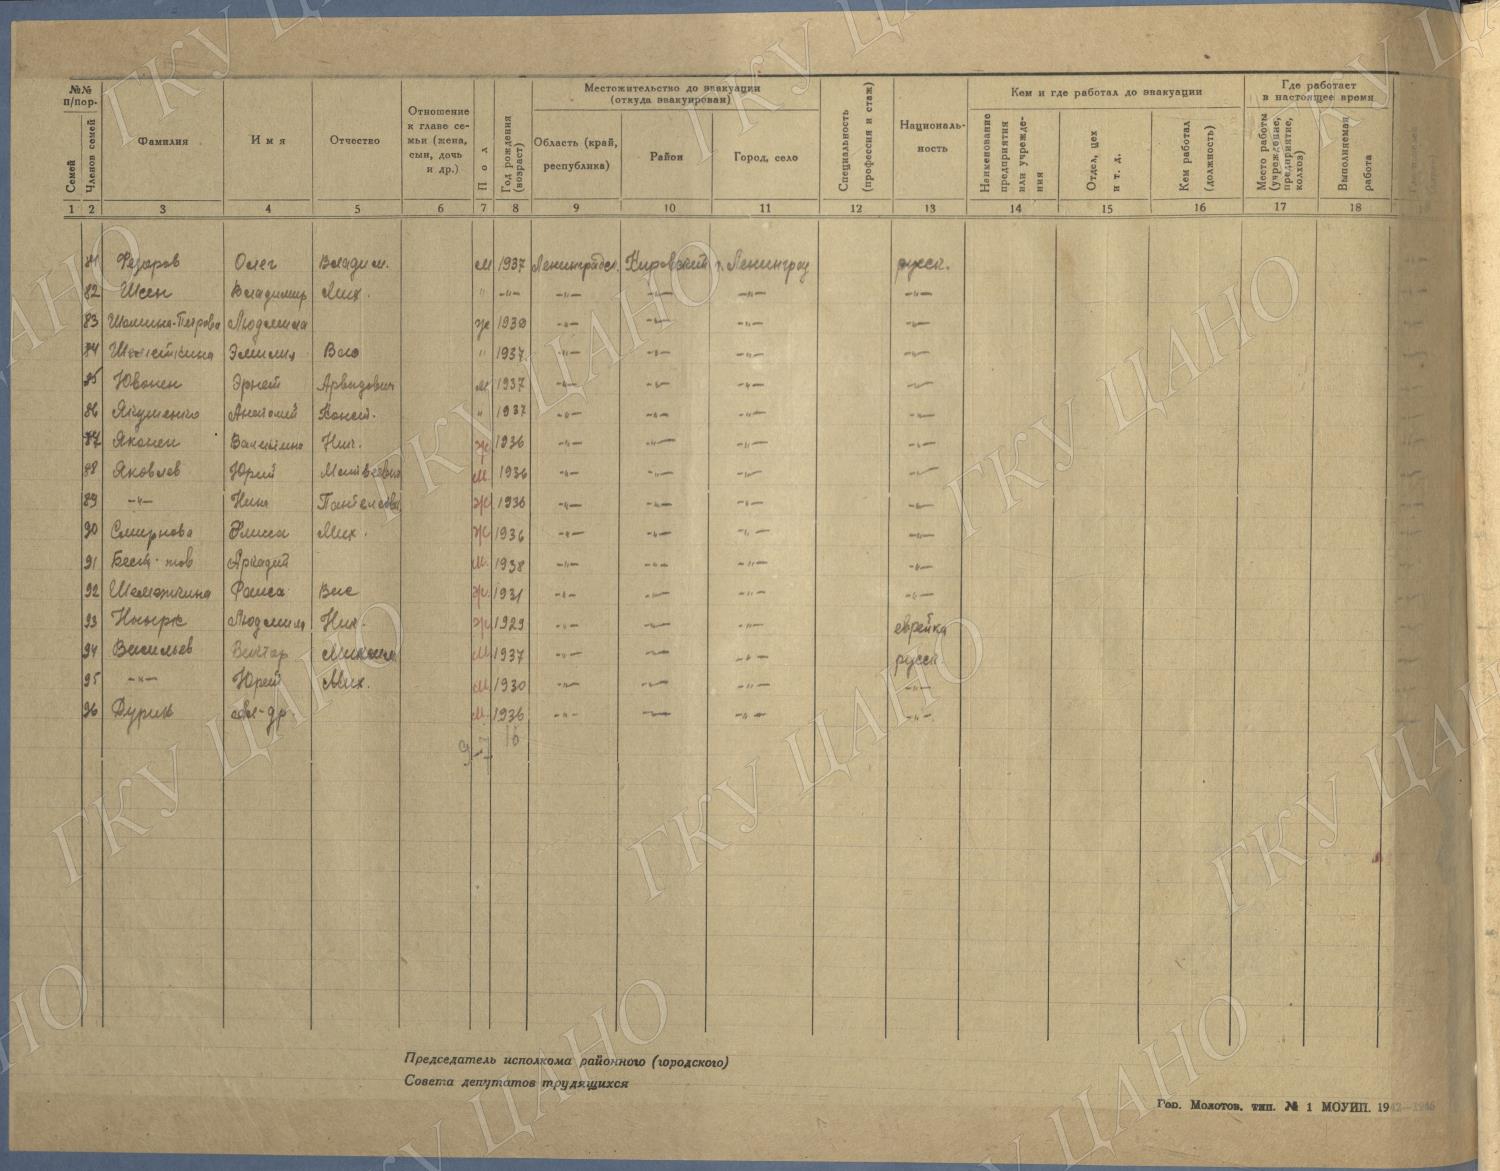 №№ п/пор.
Семей
Членов семей
Фамилия
Имя
Отчество
Отношение к главе семьи (жена, сын, дочь и др.)
Пол
Год рождения (возраст)
Местожительство до эвакуации (откуда эвакуирован)
Область (край, республика)
Район
Город, село
Специальность (профессия и стаж)
Националь-ность
Кем и где работал до эвакуации
Наименование предприятия или учреждения
Отдел, цех и т. д.
Кем работал (должность)
Где работает в настоящее время
Место работы (учреждение, предприятие, колхоз)
Выполняемая работа
1 2 3 4 5 6 7 8 9 10 11 12 13 14 15 16 17 18
81 Федоров Олег Владим. м 1937 Ленинградск. Кировский г. Ленинград русск.
82 Шен Владимир Мих. " -"- -"- -"- -"- -"-
83 Людмила ж 1930 -"- -"- -"- -"-
84 Эмилия Вас " 1937 -"- -"- -"- -"-
85 Ювонен Эрнест Арвидович м 1937 -"- -"- -"- -"-
86 Якушенко Анатолий Конст. " 1937 -"- -"- -"- -"-
87 Яконен Валентина Ник. ж 1936 -"- -"- -"- -"-
88 Яковлев Юрий Матвеевич м 1936 -"- -"- -"- -"-
89 -"- Нина ж 1936 -"- -"- -"- -"-
90 Смирнова Мих. ж 1936 -"- -"- -"- -"-
91 Аркадий м. 1938 -"- -"- -"- -"-
92 Раиса Вас ж. 1931 -"- -"- -"- -"-
93 Людмила Ник. ж 1929 -"- -"- -"- еврейка
94 Васильев Виктор Михаил м 1937 -"- -"- -"- русск.
95 -"- Юрий Мих. м 1930 -"- -"- -"- -"-
96 Дурик Ал-др м 1936 -"- -"- -"- -"-
9-7 16
Председатель исполкома районного (городского)
Совета депутатов трудящихся
Гор. Молотов, тип. № 1 МОУИП. 1942—1946
ГКУ ЦАНО